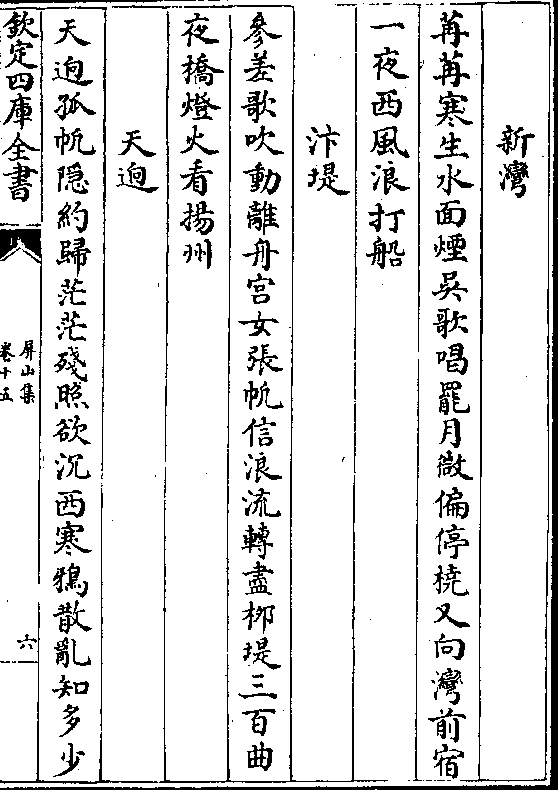 新灣
苒苒寒生水面煙吳歌唱罷月微偏停橈又向灣前宿
一夜西風浪打船
汴堤
參差歌吹動離舟宮女張帆信浪流轉盡栁堤三百曲
夜橋燈火看揚州
天逈
天逈孤帆隠約歸茫茫殘照欲沉西寒鴉散亂知多少
欽定四庫全書
屏山集
卷十五
六